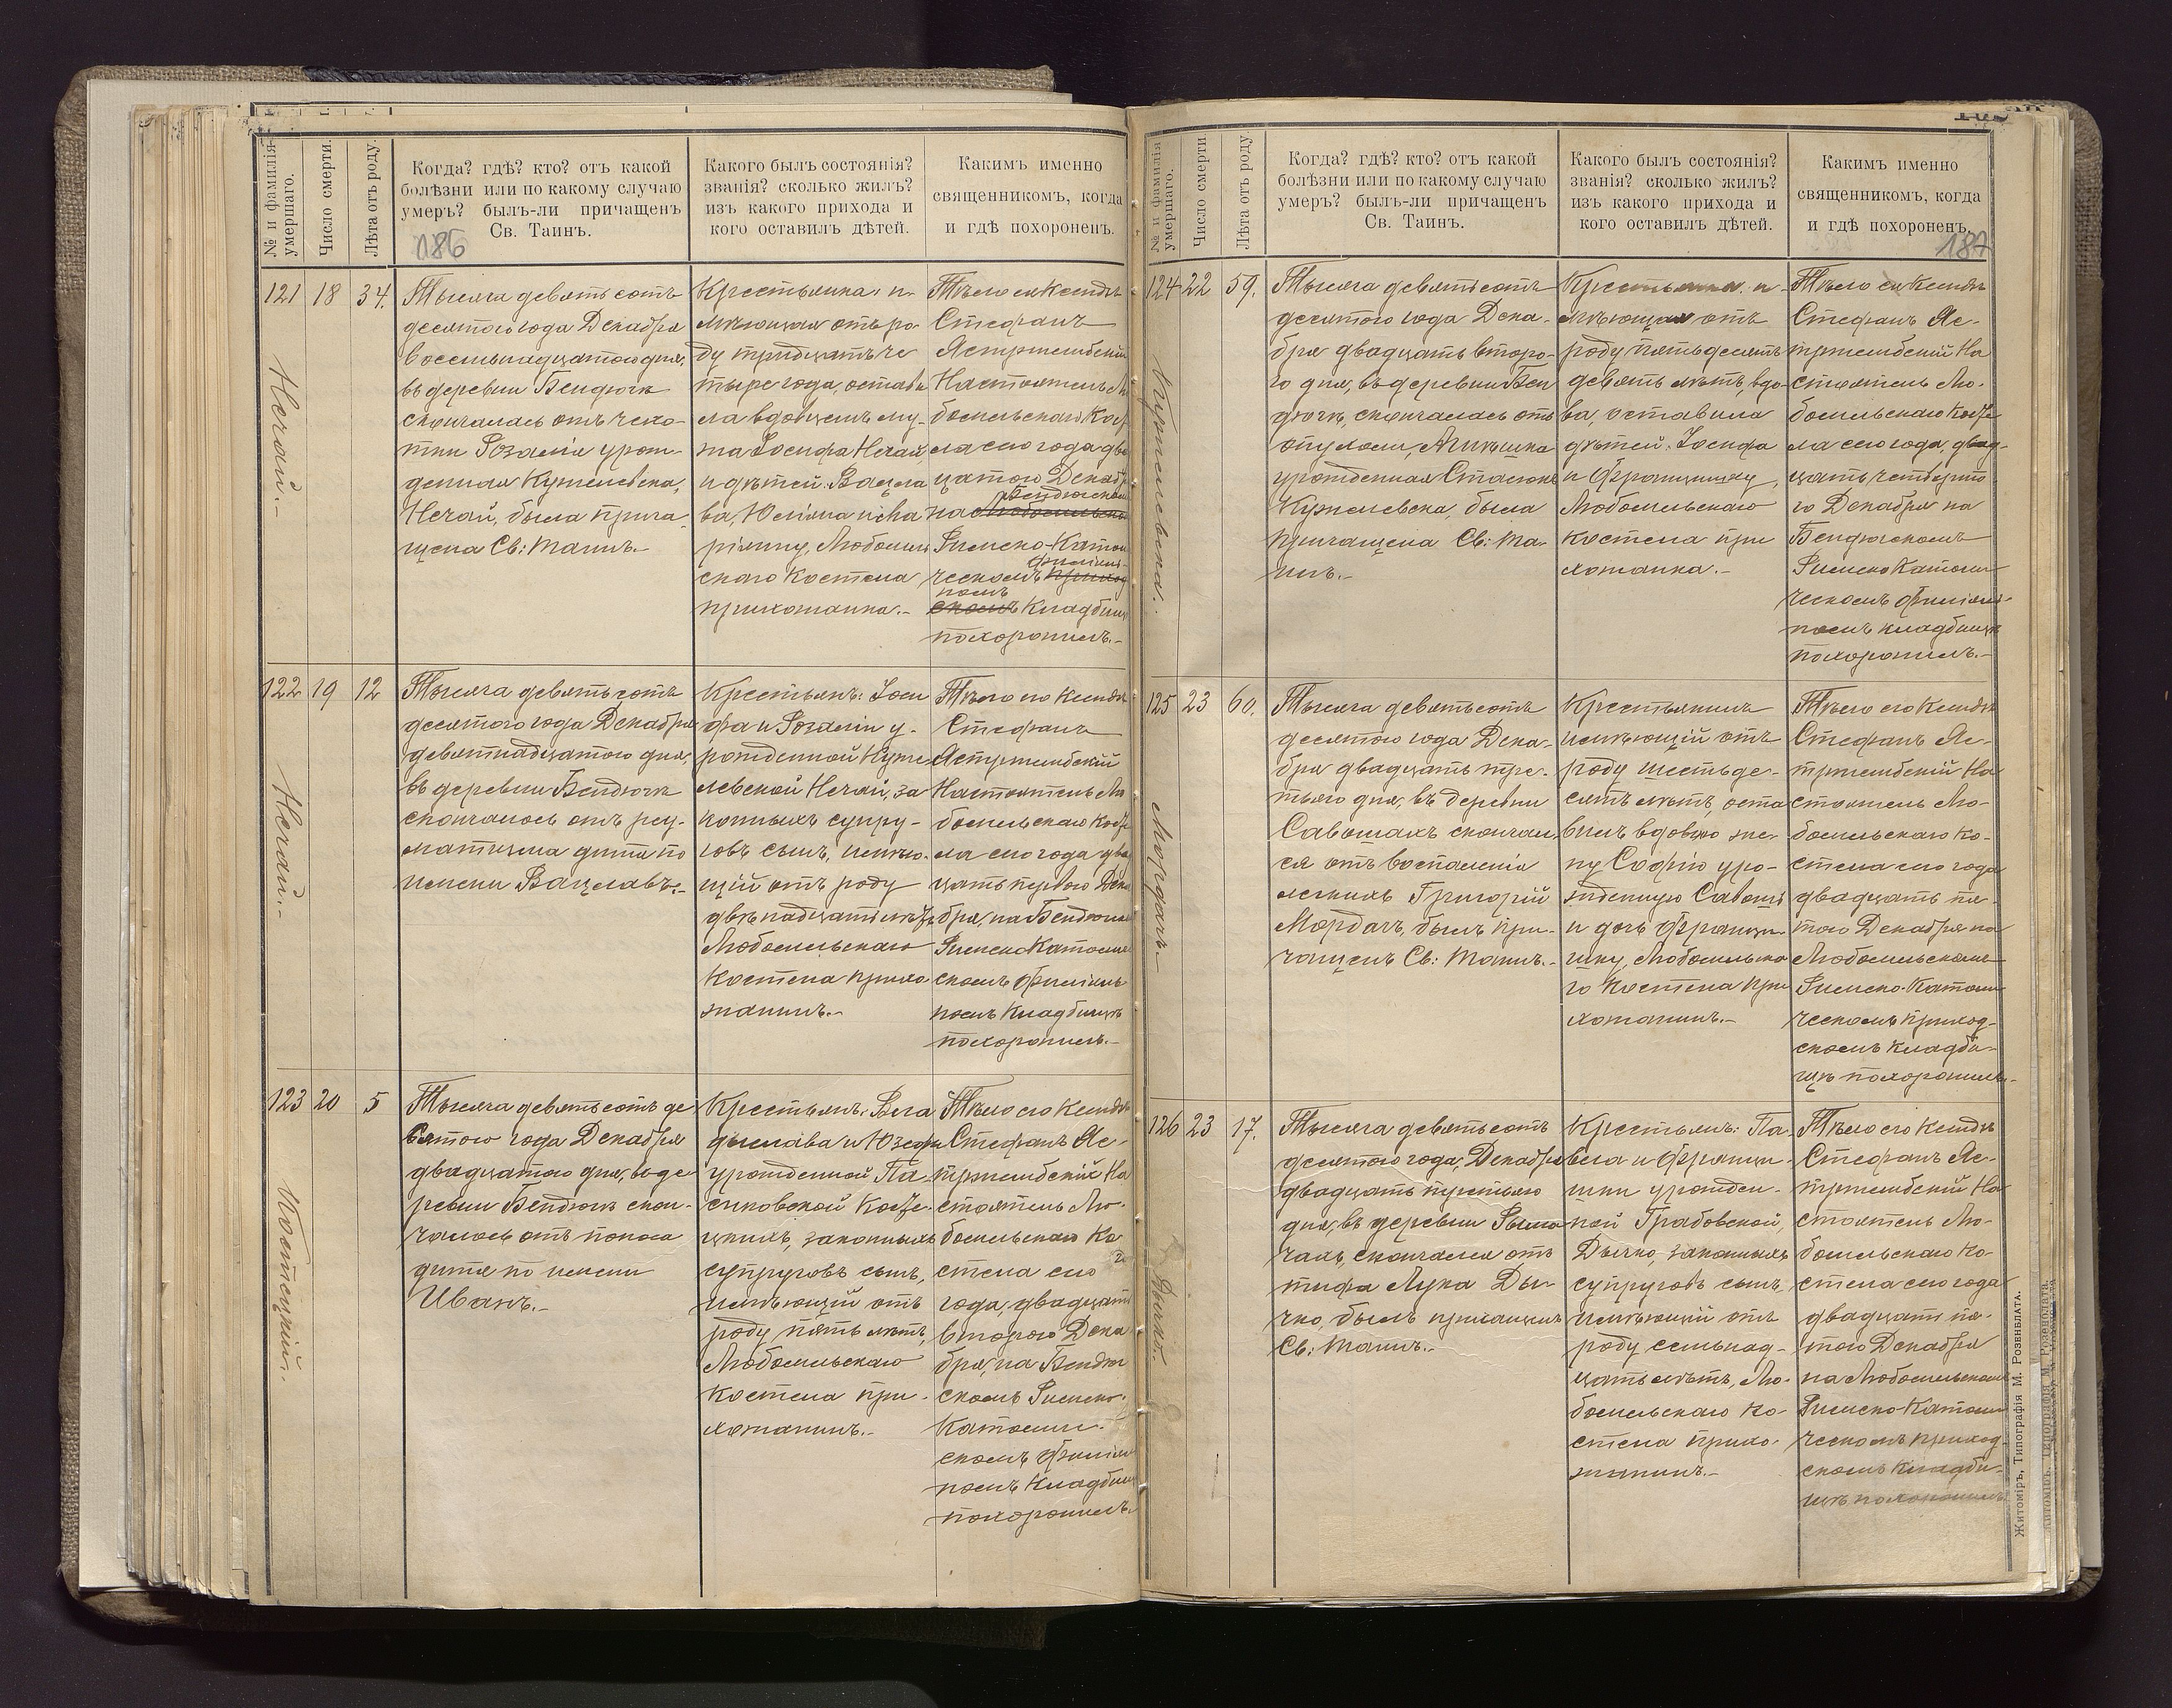 № и фамилія умершаго.
Число смерти.
Лѣта отъ роду.
Когда? гдѣ? кто? отъ какой
болѣзни или по какому случаю
умеръ? былъ-ли причащенъ
Св. Таинъ.
186
Какого былъ состоянія?
званія? сколько жилъ?
изъ какого прихода и
кого оставилъ дѣтей.
Какимъ именно
священникомъ, когда
и гдѣ похороненъ.
121
Нечай.-
18
34.
Тысяча девятьсотъ
десятого года Декабря
восемьнадцатого дня,
въ деревни Бендюгѣ
скончалась отъ чахо-
тки Розалія урож-
денная Кужелевска,
Нечай, была прича
щена Св: Таинъ.-
Крестьянка, и-
мѣющая отъ ро-
ду тридцать че
тыре года, остави
ла вдовцемъ му-
жа Іосифа Нечай,
и дѣтей: Вацла
ва, Юліяна и Ма
ріянну, Любомль
скаго костела
прихожанка.-
Тѣло ея Ксендзъ
Стефанъ
Ястржембскій
Настоятель Лю
бомльскаго Кос
ла сего года два
цатого Декабр
Бендюгском
на Любомльском
Римско-Катол
филіяль-
ческомъ приход
номъ
скомъ кладбищѣ
похоронилъ.-
122
Нечай.-
19
12
Тысяча девятьсотъ
десятого года Декабря
девятнадцатого дня,
въ деревни Бендюгѣ
скончалось отъ рев-
матизма дитя по
имени Вацлавъ.-
Крестьянъ: Іоси
фа и Розаліи у-
рожденной Куже
левской Нечай, за
конныхъ супру-
говъ сынъ, имѣю-
щій отъ роду
двѣнадцать лѣтъ
Любомльскаго
костела прихо
жанинъ.-
Тѣло его Ксендзъ
Стефанъ
Ястржембскій
Настоятель Лю
бомльскаго Косте
ла сего года два
цать первого Дека
бря, на Бендюгск
Римско Католич
скомъ филіяль
номъ кладбищѣ
похоронилъ.-
123
Костецкій.-
20
5
Тысяча девятьсотъ де
сятого года Декабря
двадцатого дня, въ де
ревни Бендюгѣ скон-
чалось отъ поноса
дитя по имени
Иванъ.-
Крестьянъ: Вла
дыслава и Юзефы
урожденной Па-
сиковской Косте-
цкихъ, законныхъ
супруговъ сынъ,
имѣющій отъ
роду пять лѣтъ,
Любомльскаго
костела при-
хожанинъ.-
Тѣло его Ксендзъ
Стефанъ Яс-
тржембскій На
стоятель Лю-
бомльскаго Ко
стела сего
года, двадцать
второго Дека
бря, на Бендюг
скомъ Римско-
Католич-
скомъ филіял
номъ кладбищ
похоронилъ.
№ и фамилія умершаго.
Число смерти.
Лѣта отъ роду.
Когда? гдѣ? кто? отъ какой
болѣзни или по какому случаю
умеръ? былъ-ли причащенъ
Св. Таинъ.
Какого былъ состоянія?
званія? сколько жилъ?
изъ какого прихода и
кого оставилъ дѣтей.
Какимъ именно
священникомъ, когда
и гдѣ похороненъ.
187
124
Кужелевска.
22
59.
Тысяча девятьсотъ
десятого года Дека-
бря двадцать второ-
го дня, въ деревни Бен
дюгѣ, скончалась отъ
опухоли, Агнѣшка
урожденная Стасюкъ
Кужелевска, была
причащена Св: Та-
инъ.-
Крестьянка, и-
мѣющая отъ
роду пятьдесятъ
девять лѣтъ, вдо-
ва, оставила
дѣтей: Іосифа
и Францишку,
Любомльскаго
костела при
хожанка.-
Тѣло ея Ксендзъ
Стефанъ Яс-
тржембскій На
стоятель Лю-
бомльскаго Косте
ла сего года, двад-
цать четверто
го Декабря на
Бендюгскомъ
Римско Католи
ческомъ филіяль-
номъ кладбищѣ
похоронилъ.-
125
Мордачъ.-
23
60.
Тысяча девятьсотъ
десятого года Дека-
бря двадцать тре-
тьяго дня, въ деревни
Савошахъ скончал
ся отъ воспаленія
легкихъ Григорій
Мордачъ, былъ при-
чащенъ Св: Таинъ.-
Крестьянинъ
имѣющій отъ
роду шестьде-
сятъ лѣтъ, оста
вилъ вдовою же-
ну Софію уро-
жденную Савошъ
и дочь Франци-
шку, Любомльска
го костела при
хожанинъ.-
Тѣло его Ксендзъ
Стефанъ Яс-
тржембскій На
стоятель Лю-
бомльскаго ко-
стела сего года
двадцать пя-
того Декабря на
Любомльскомъ
Римско-Католи
ческомъ приход-
скомъ кладби-
щѣ похоронилъ.-
126
Дычко.
23
17.
Тысяча девятьсотъ
десятого года, Декабря
двадцать третьяго
дня, въ деревни Рыма
чахъ, скончался отъ
тифа Лука Ды-
чко, былъ причащенъ
Св: Таинъ.-
Крестьянъ: Па-
вла и Францы-
шки урожден-
ной Грабовской,
Дычко, законныхъ
супруговъ сынъ,
имѣющій отъ
роду семьнад-
цать лѣтъ, Лю-
бомльскаго ко-
стела прихо-
жанинъ.-
Тѣло его Ксендзъ
Стефанъ Яс-
тржембскій На
стоятель Лю-
бомльскаго ко
стела сего года
двадцать пя-
того Декабря
на Любомльскомъ
Римско-Католи
ческомъ приход-
скомъ кладби-
щѣ похоронилъ
Житоміръ, Типографія М. Розенблата.